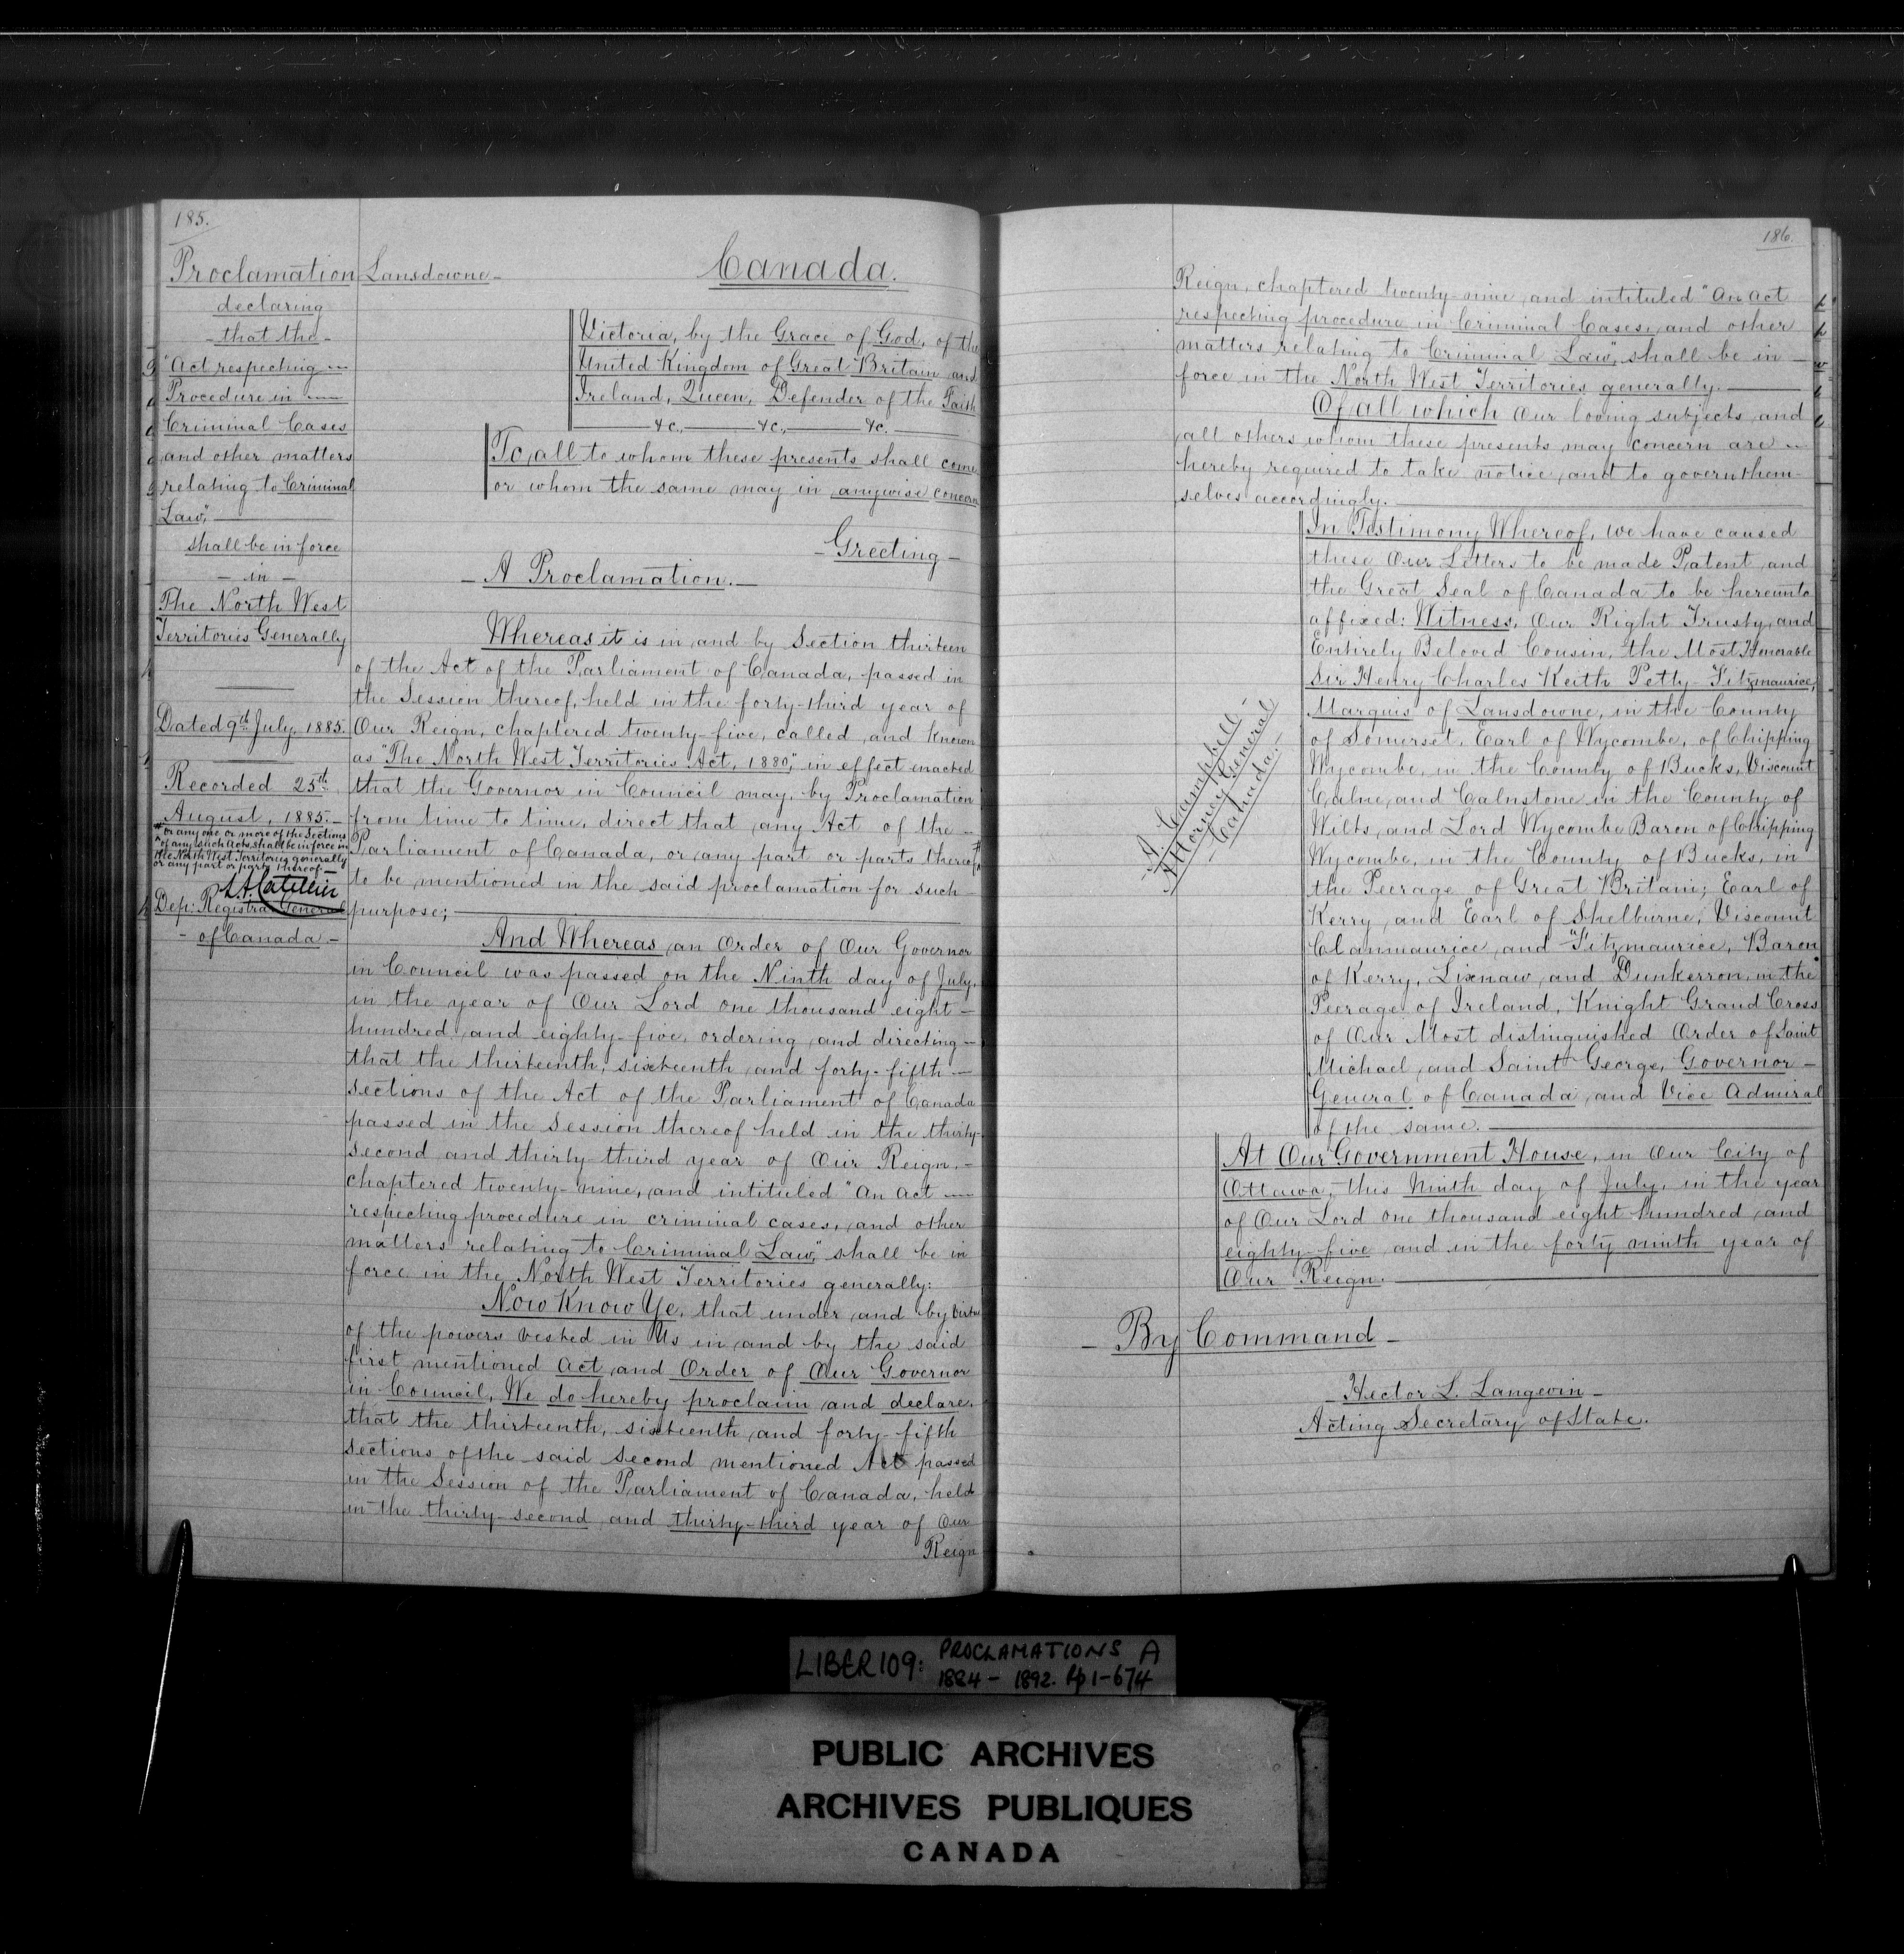 185.
Proclamation
declaring
- that the -
"Act respecting
Procedure in
Criminal Cases
and other matters
relating to Criminal
Law,"
shall be in force
- in -
The North West
Territories Generally
Dated 9th July, 1885.
Recorded 25th
August, 1885. -
* or any one or more of the Sections
of any such Acts, shall be in force in
the North West Territories generally
or any part or parts thereof. -
Dep: Registrar General
- of Canada -
Lansdowne -
Canada.
Victoria, by the Grace of God, of the
United Kingdom of Great Britain and
Ireland, Queen, Defender of the Faith
&c., &c., &c.
To all to whom these presents shall come
or whom the same may in anywise concern
- Greeting -
- A Proclamation. -
Whereas it is in and by Section thirteen
of the Act of the Parliament of Canada, passed in
the Session thereof, held in the forty-third year of
Our Reign, chaptered twenty-five, called and known
as "The North West Territories Act, 1880," in effect enacted
that the Governor in Council may, by Proclamation
from time to time, direct that any Act of the -
Parliament of Canada, or any part or parts thereof *
to be mentioned in the said proclamation for such -
purpose;
And Whereas an Order of Our Governor
in Council was passed on the Ninth day of July,
in the year of Our Lord one thousand eight -
hundred and eighty-five, ordering and directing -
that the thirteenth, sixteenth and forty-fifth -
sections of the Act of the Parliament of Canada
passed in the Session thereof held in the thirty-
second and thirty-third year of Our Reign, -
chaptered twenty-nine, and intituled "An Act -
respecting procedure in criminal cases, and other
matters relating to Criminal Law," shall be in
force in the North West Territories generally:
Now Know Ye, that under and by virtue
of the powers vested in Us in and by the said
first mentioned Act and Order of Our Governor
in Council, We do hereby proclaim and declare,
that the thirteenth, sixteenth and forty-fifth
sections of the said second mentioned Act passed
in the Session of the Parliament of Canada, held
in the thirty-second and thirty-third year of Our
Reign
186.
Reign, chaptered twenty-nine and intituled "An Act
respecting procedure in Criminal Cases, and other
matters relating to Criminal Law," shall be in -
force in the North West Territories generally.
Of all which Our loving subjects and
all others whom these presents may concern are -
hereby required to take notice and to govern them-
selves accordingly.
In Testimony Whereof, We have caused
these Our Letters to be made Patent and
the Great Seal of Canada to be hereunto
affixed: Witness, Our Right Trusty and
Entirely Beloved Cousin, the Most Honorable
Sir Henry Charles Keith Petty-Fitzmaurice,
Marquis of Lansdowne, in the County
of Somerset, Earl of Wycombe, of Chipping
Wycombe, in the County of Bucks, Viscount
Calne and Calnstone in the County of
Wilts, and Lord Wycombe Baron of Chipping
Wycombe, in the County of Bucks, in
the Peerage of Great Britain; Earl of
Kerry and Earl of Shelburne, Viscount
Clanmaurice and Fitzmaurice, Baron
of Kerry, Lixnaw and Dunkerron, in the
Peerage of Ireland, Knight Grand Cross
of Our Most distinguished Order of Saint
Michael and Saint George, Governor -
General of Canada and Vice Admiral
of the same.
A. Campbell -
Attorney General
- Canada. -
At Our Government House, in Our City of
Ottawa, this Ninth day of July, in the year
of Our Lord one thousand eight hundred and
eighty-five and in the forty ninth year of
Our Reign.
- By Command -
- Hector L. Langevin -
Acting Secretary of State.
LIBER 109: PROCLAMATIONS A
1884 - 1892. pp 1-674
PUBLIC ARCHIVES
ARCHIVES PUBLIQUES
CANADA